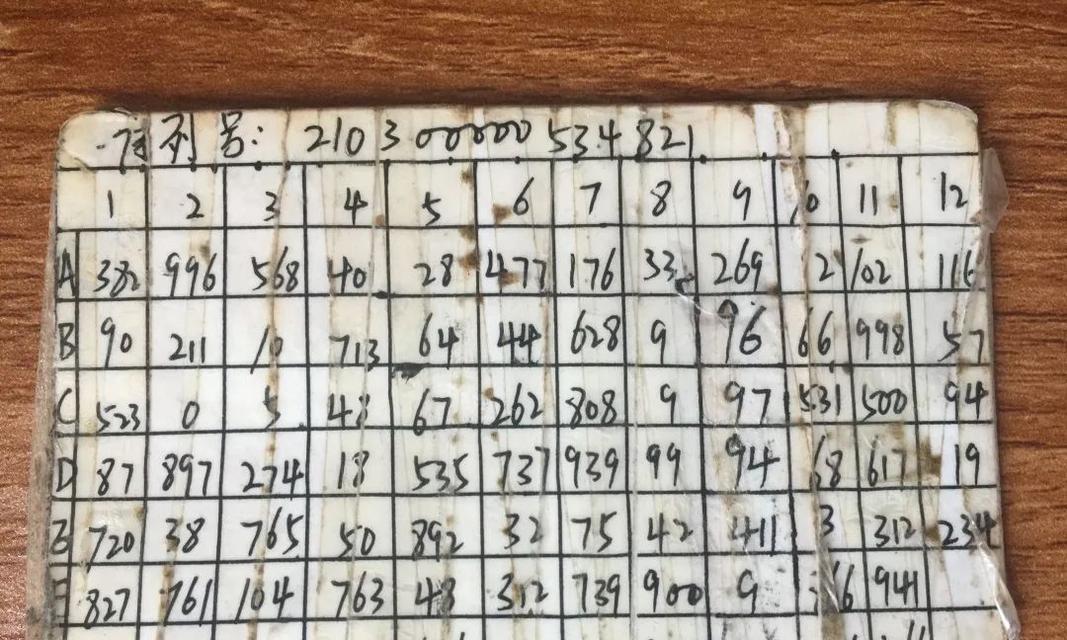 序列号: 210300000534821
1 2 3 4 5 6 7 8 9 10 11 12
A 382 996 568 40 28 477 176 33 269 2 102 116
B 90 211 10 713 64 44 628 9 96 66 998 57
C 523 0 5 48 67 262 808 9 97 531 500 94
D 87 897 274 18 535 737 939 99 94 68 617 19
E 720 38 765 50 892 32 75 42 411 3 312 234
F 827 761 104 763 48 312 739 900 9 941